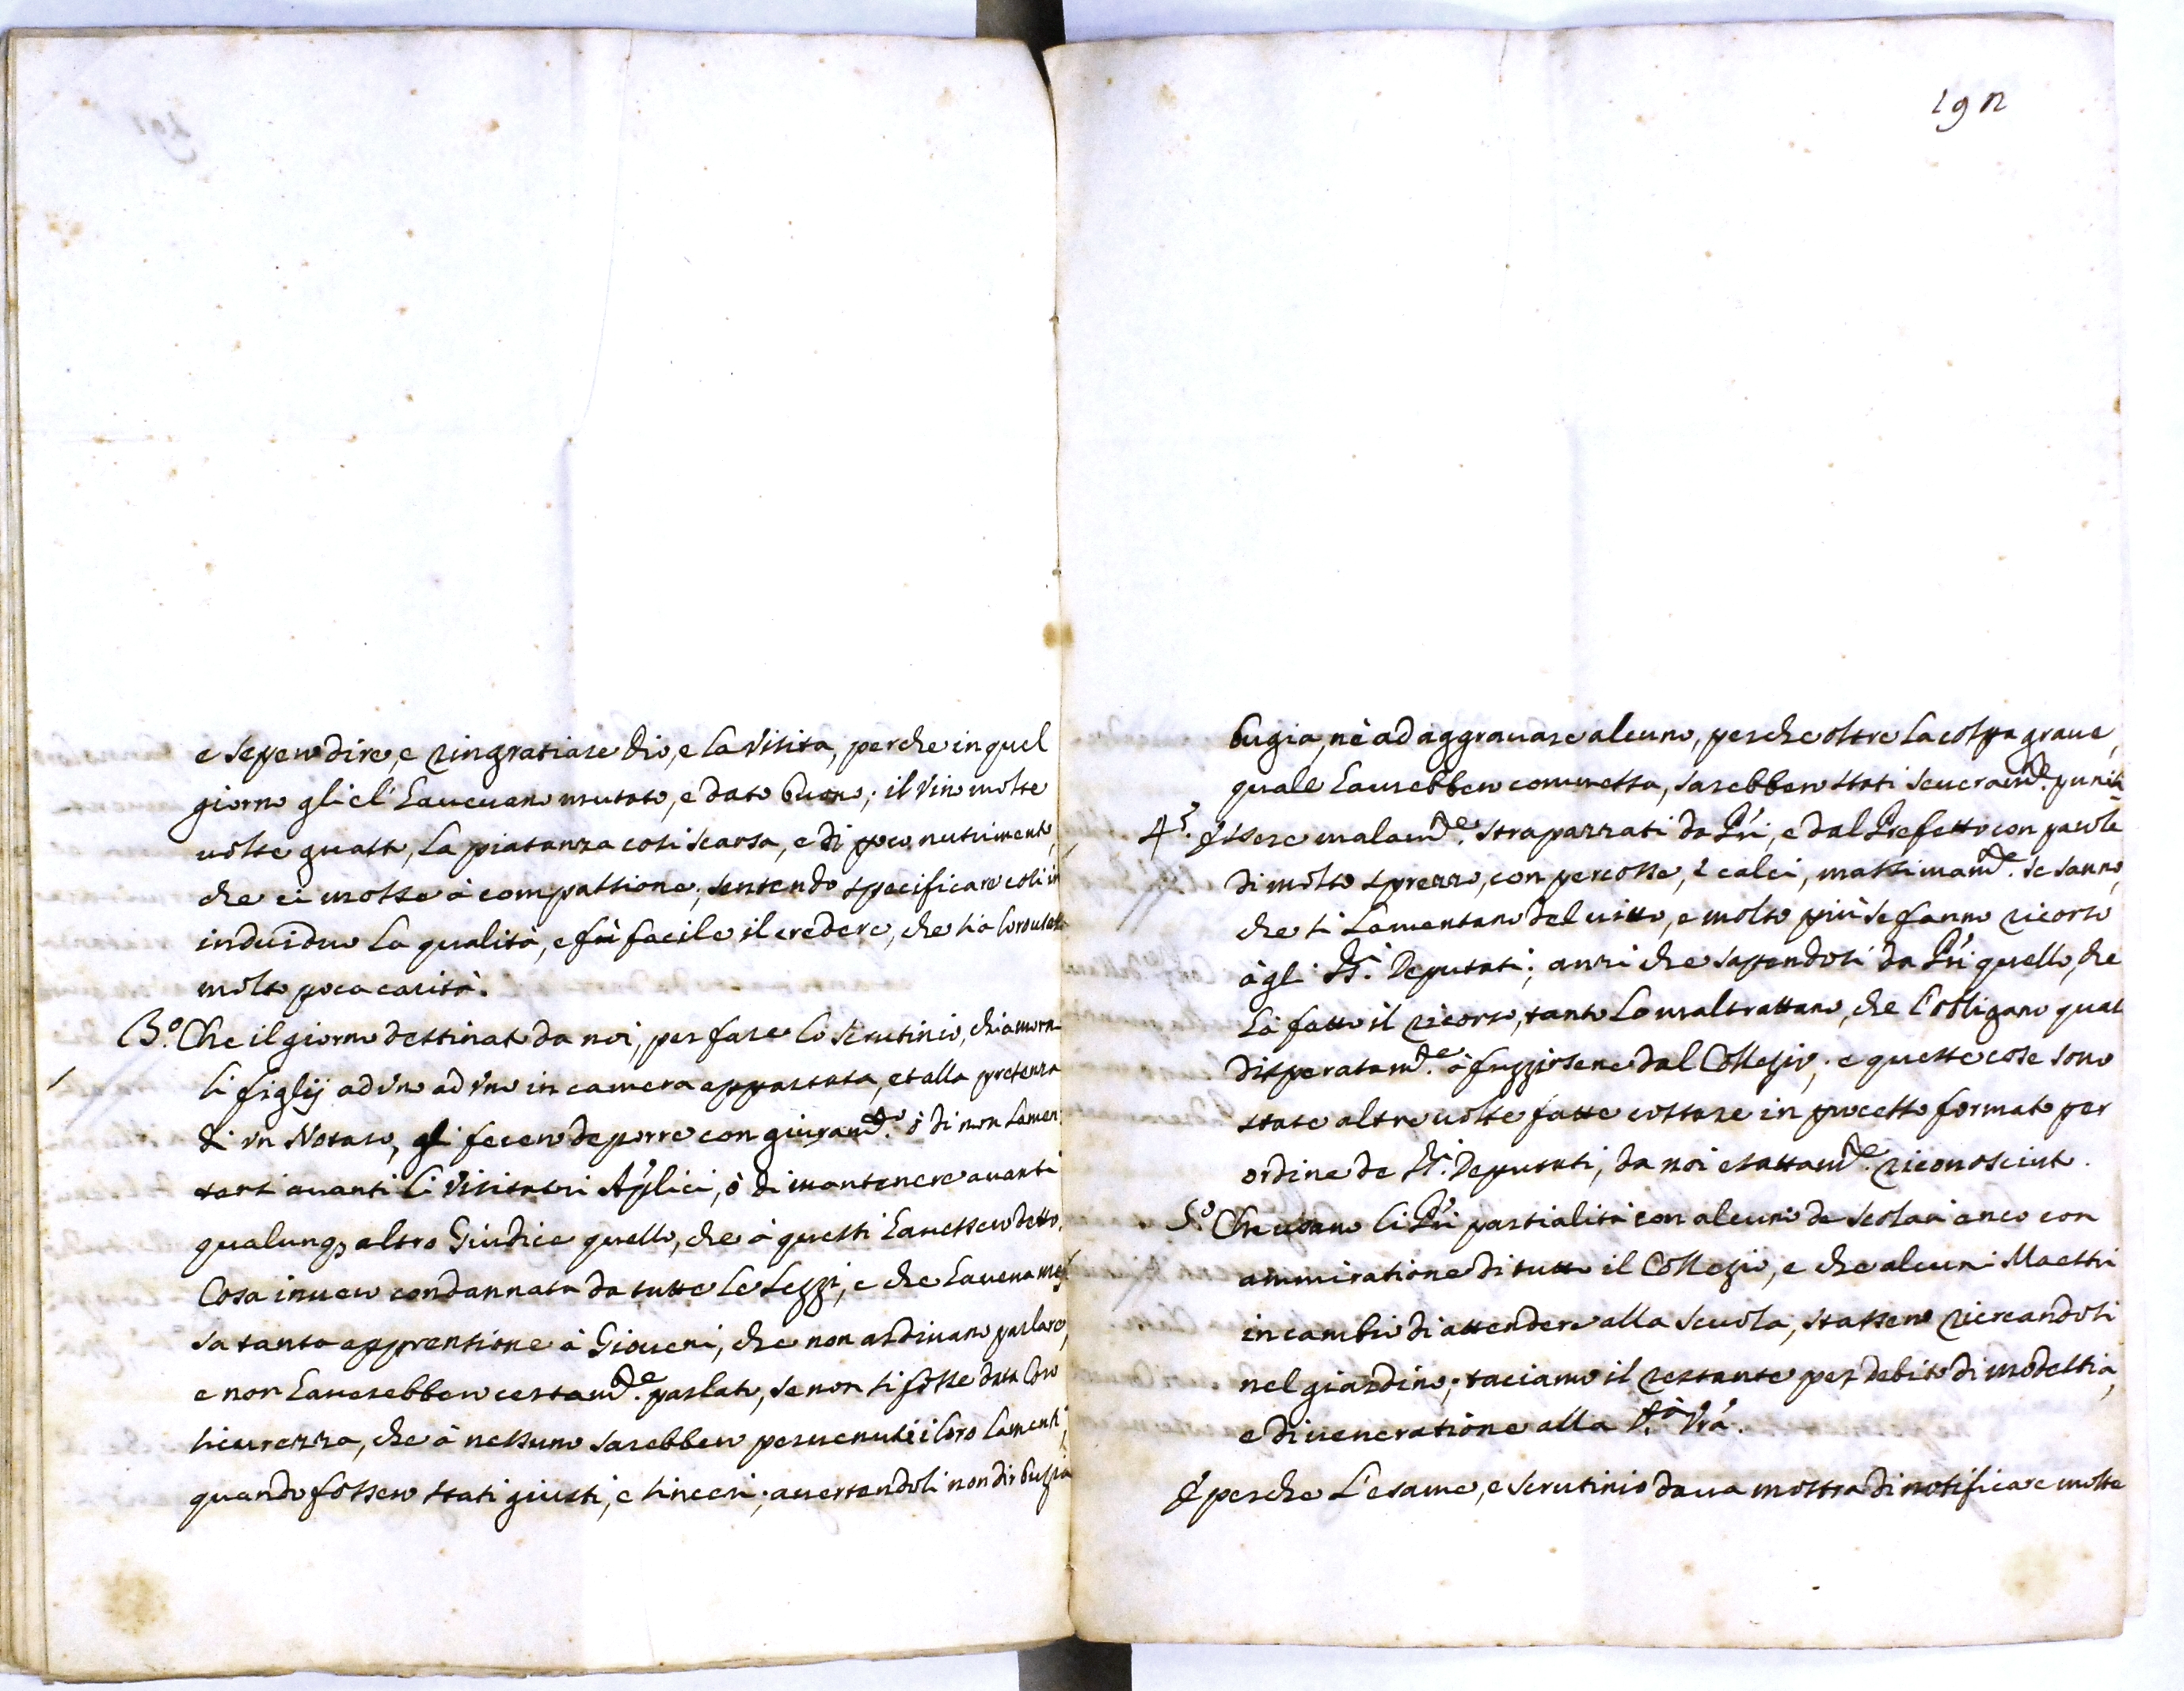 e sepero dire, e ringratiare Dio, e la Visita, perche in quel
giorno gliel' haueuano mutato, e dato buono; il Vino molte
uolte guasto, la piatanza cosi scarsa, e di poco nutrimento,
che ci mosse à compassione; sentendo specificare cosi in
induiduo la qualità, e fù facile il credere, che sia loro usata
molto poca carità.
3.º Che il giorno destinato da noi, per fare lo scrutinio, chiamorno
li figlij ad vno ad vno in camera appartata, et alla presenza
di vn Notaro, gli fecero deporre con giuram.to ò di non lamen
tarsi auanti li Visitatori Aplici, ò di mantenere auanti
qualunq; altro Giudice quello, che à questi hauessero detto,
Cosa in uero condannata da tutte le Leggi, e che haueua mes
sa tanta apprensione à Gioueni, che non ardiuano parlare,
e non hauerebbero certam.te parlato, se non si fosse data loro
sicurezza, che à nessuno sarebbero peruenuti i loro lamenti,
quando fossero stati giusti, e sinceri; auertendoli non dir bugia
192
bugia, nè ad aggrauare alcuno, perche oltre la colpa graue,
quale haurebbero commessa, sarebbero stati seueram.te puniti
4.º Essere malam.te strapazzati da Pri, e dal Prefetto con parole
di molto sprezzo, con percosse, e calci, massimam.te se sanno,
che si lamentano del uitto, e molto più se fanno ricorso
à gli SS.ri Deputati; anzi che sapendosi da Pri quello, che
hà fatto il ricorso, tanto lo maltrattano, che l'obligano quasi
disperatam.te à fuggirsene dal Collegio; e queste cose sono
state altre uolte fatte costare in processo formato per
ordine de SS.ri Deputati, da noi esattam.te riconosciuto.
5.º Che usano li Pri partialità con alcuni de Scolari anco con
ammiratione di tutto il Collegio, e che alcuni Maestri
in cambio di attendere alla scuola, stassero ricreandosi
nel giardino; taciamo il restante per debito di modestia,
e di ueneratione alla S.tà Vrã.
E perche l'esame, e scrutinio daua mostra di notificare molte